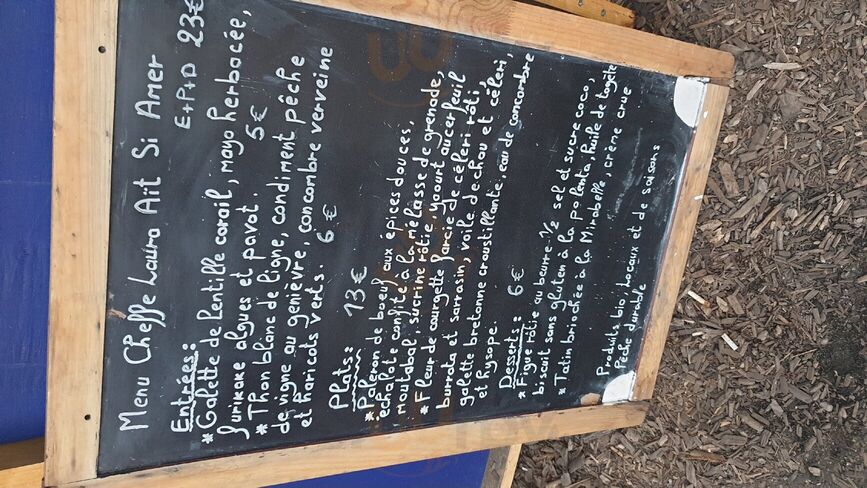 Menu Cheffe Laura Aït Si Amer
E+P+D 23€
Entrées:
* Galette de lentille corail, mayo herbacée,
furikake algues et pavot. 5€
* Thon blanc de ligne, condiment pêche
de vigne au genièvre, concombre verveine
et haricots verts. 6€
Plats: 13€
* Paleron de boeuf aux épices douces,
échalote confite à la mélasse de grenade,
moutabal, sucrine rôtie, yaourt au cerfeuil
* Fleur de courgette farcie de céleri rôti
burrata et sarrasin, voile de chou et céleri,
galette bretonne croustillante, eau de concombre
et hysope.
Desserts: 6€
* Figue rôtie au beurre 1/2 sel et sucre coco,
biscuit sans gluten à la polenta, huile de tagète
* Tatin briochée à la Mirabelle, crème crue
Produits bio, locaux et de saisons
Pêche durable